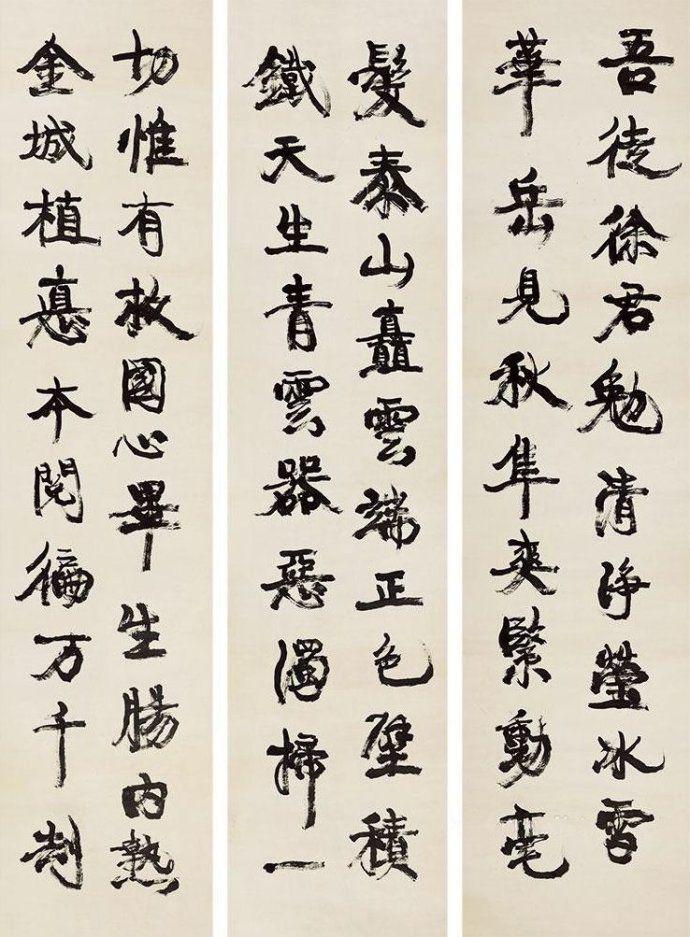 吾徒徐君勉清淨瑩冰雪
華岳見秋隼爽緊動毫
髮泰山矗雲端正色壁積
鐵天生青雲器惡濁掃一
切惟有救國心畢生腸內熱
金城植悳本閱徧万千刦